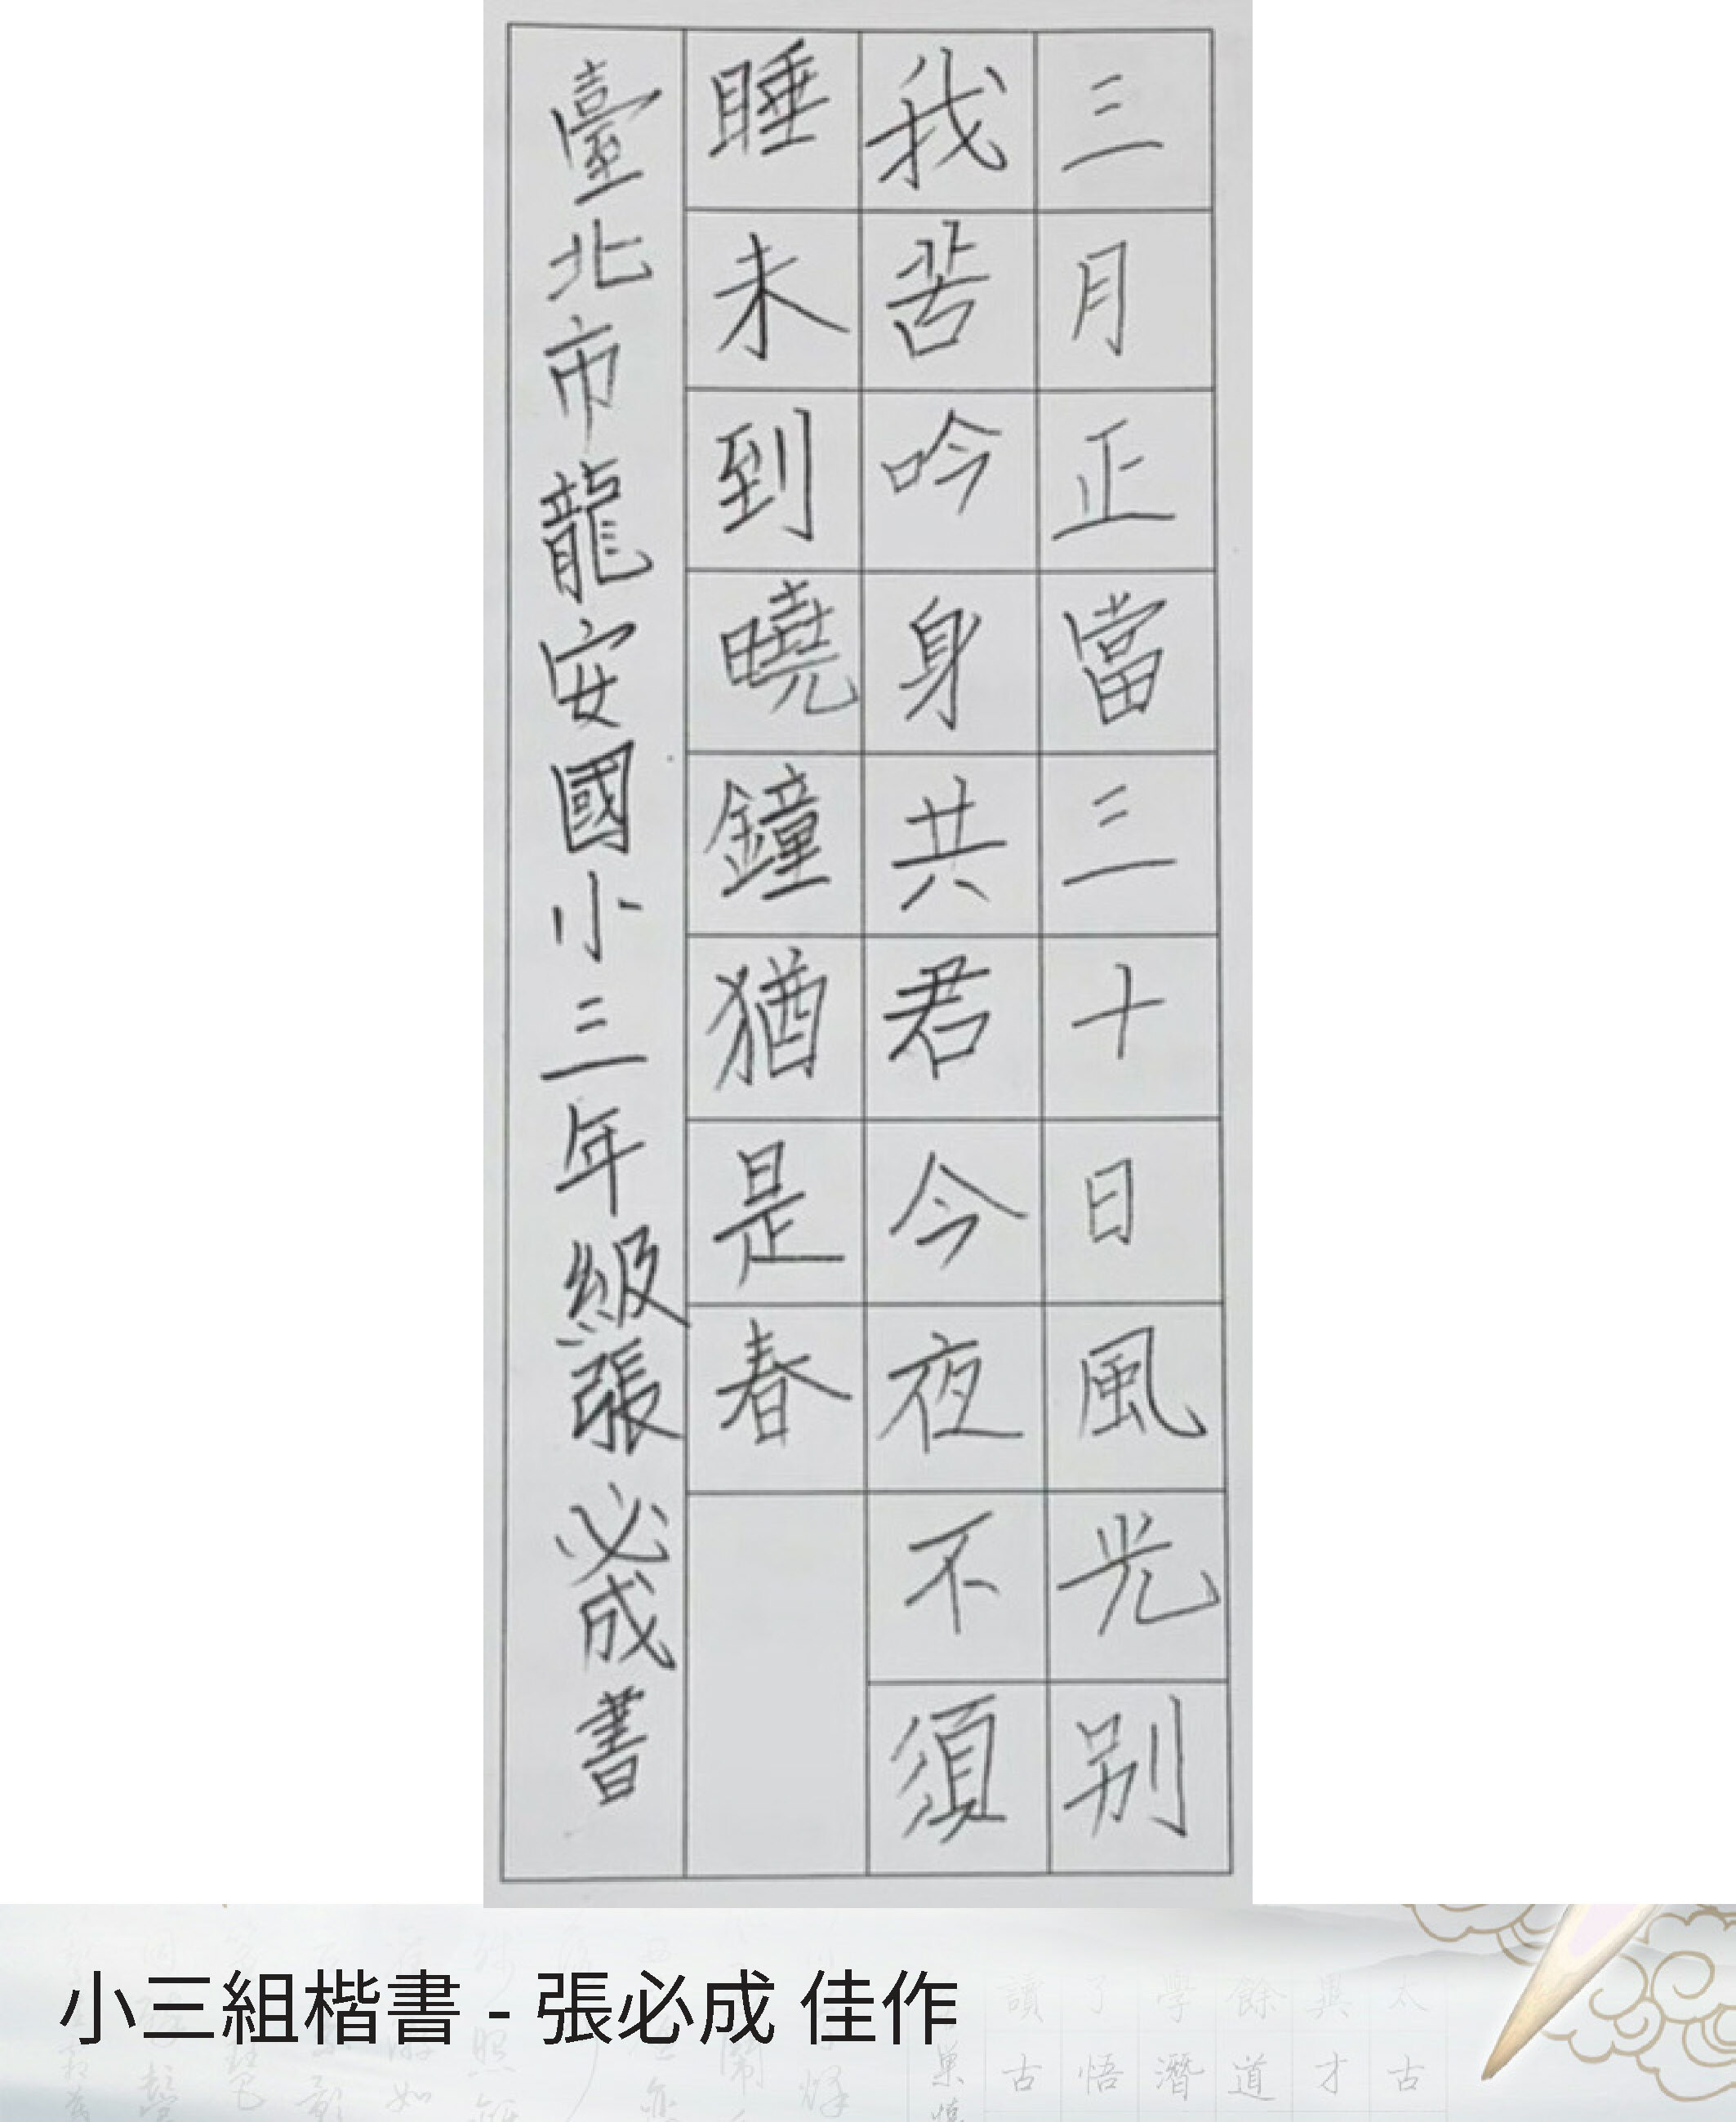 三月正當三十日風光別
我苦吟身共君今夜不須
睡未到曉鐘猶是春
臺北市龍安國小三年級張必成書
小三組楷書 - 張必成 佳作